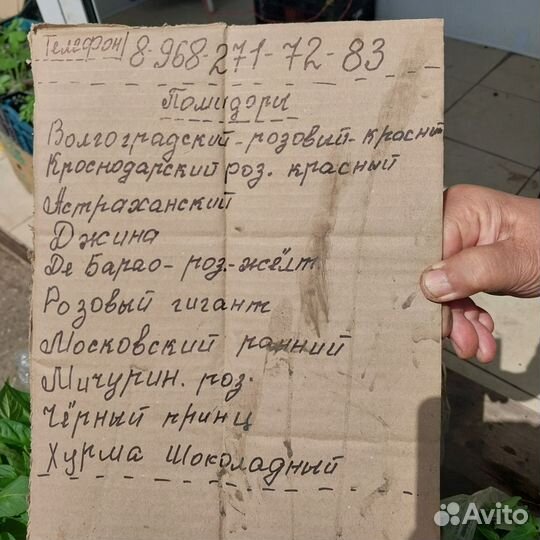 Телефон 8-968-271-72-83
Помидоры
Волгоградский-розовый-красный
Кроснодарский роз. красный
Астраханский
Джина
Де Барао-роз.-жёлт
Розовый гигант
Московский ранний
Мичурин. роз.
Чёрный принц
Хурма Шоколадный
Avito